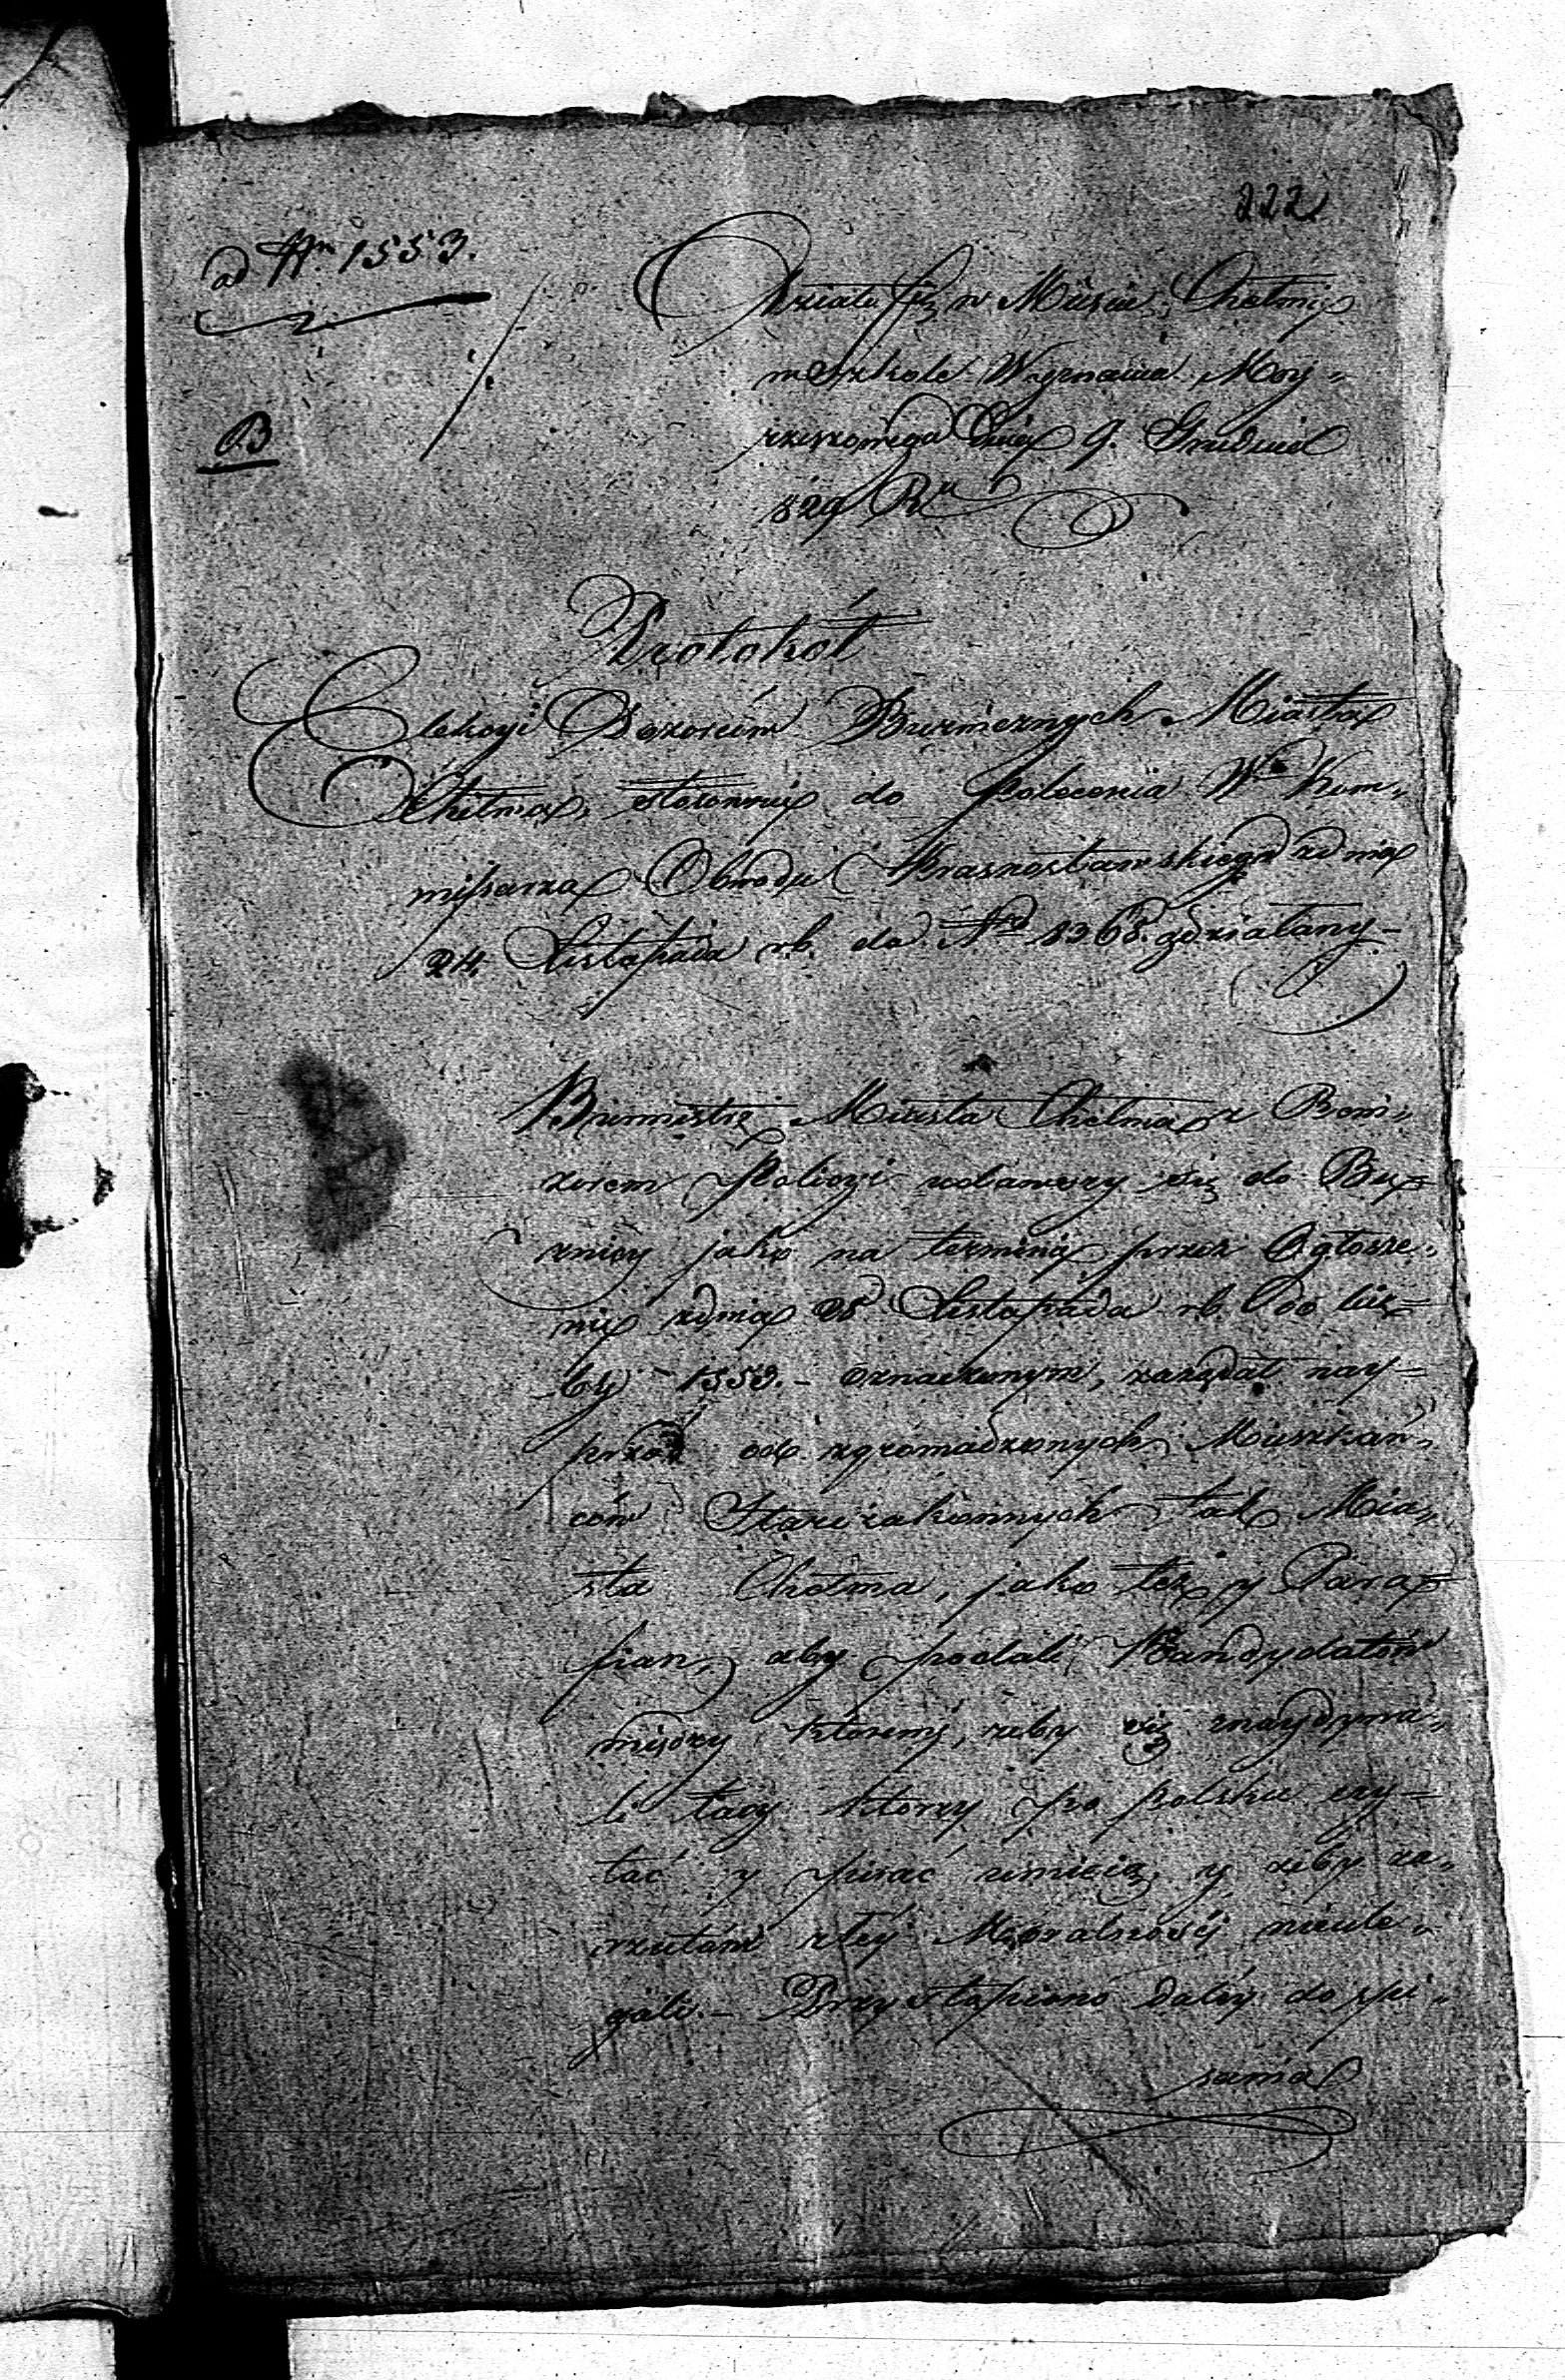 222
ad Nrm 1553.
B
Działo się w Mieście Chełmie
w Szkole Wyznania Moy„
rzeszowego Dnia 9. Grudnia
829 Ru
Protokół
Elekcyi Dozorców Bużnicznych Miasta
Chełma, stosownie do Polecenia Wo Kom„
missarza Obwodu Krasnostawskiego z dnia
24 Listopada r.b. do Nro 8368. zdziałany–
Burmistrz Miasta Chełma z
Policyi udawszy się do Buż=
nicy jako na terminie przez Ogłosze„
nie z dnia 28 Listopada r.b. do licz=
by 1553. – oznaczonym, zażądał nay=
przód od zgromadzonych Mieszkań„
ców Starozakonnych tak Mia„
sta Chełma, jako też y Para=
fian, aby podali Kandydatów
między któremi, żeby się znaydywa„
li tacy którzy po polsku czy=
tać y pisać umieią, y żeby za„
rzutowi złéy Moralności nieule„
gali. – Przystąpiono daléy do spi„
sania